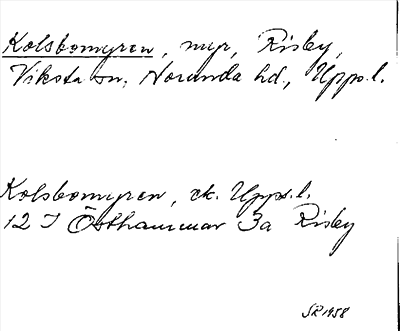 Kolsbomyren, myr, Risby,
Viksta sn, Norunda hd., Upps.l.
Kolsbomyren, ek. Upps.l.
12 I Östhammar 3a Risby
SR 1958